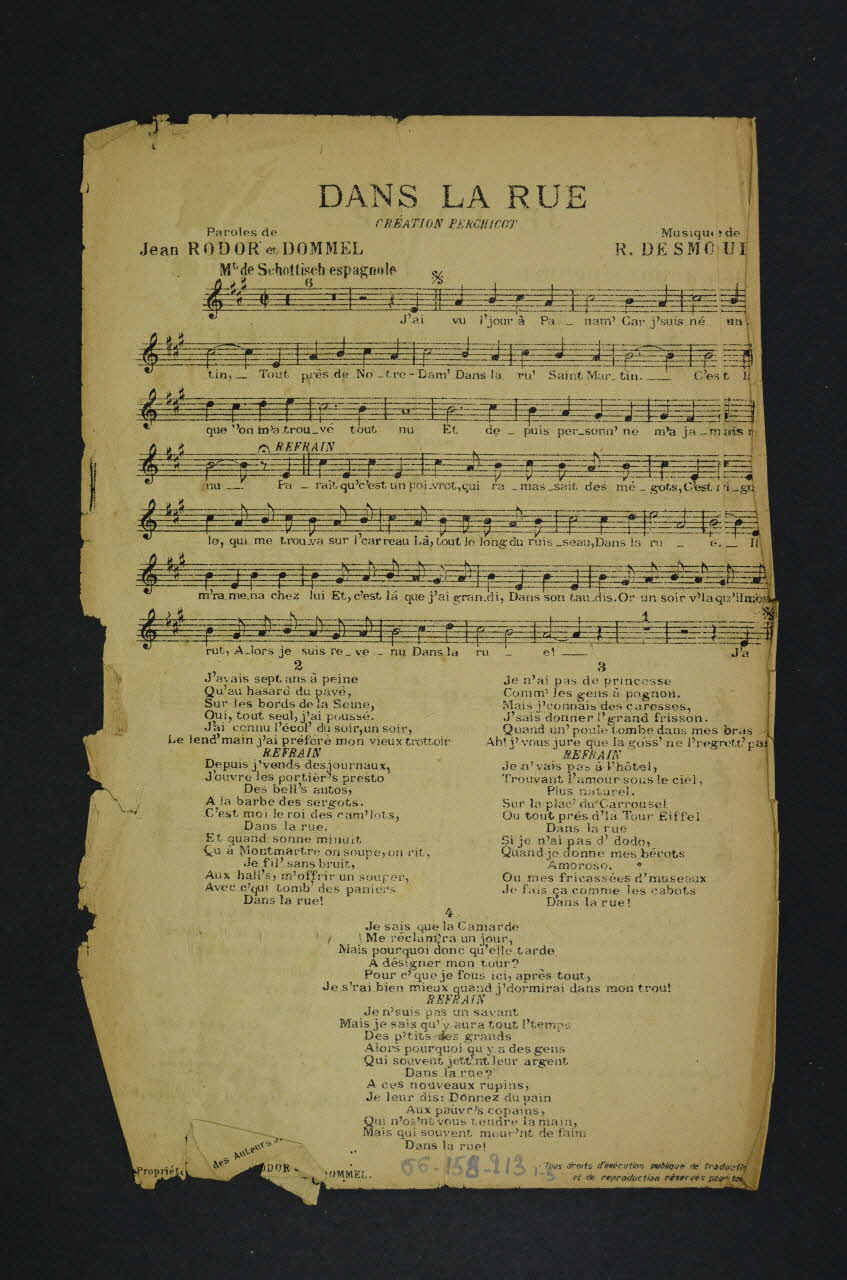 DANS LA RUE
CRÉATION PERCHICOT
Paroles de
Jean RODOR et DOMMEL
Musique de
R. DESMOU
Mt de Schottisch espagnole
6
J'ai vu l'jour à Pa_nam' Car j'suis né un
tin,_ Tout près de No_tre-Dam' Dans la ru' Saint Mar_tin.__ C'est l
que l'on m'a trou_vé tout nu Et de_puis per_sonn' ne m'a ja_mais
REFRAIN
nu__ Pa_raît qu'c'est un poi_vrot, qui ra_mas_sait des mé_gots, C'est ri_go
lo, qui me trou_va sur l'carreau Là, tout le long du ruis_seau, Dans la ru_e._ Il
m'ra me_na chez lui Et, c'est là que j'ai gran_di, Dans son tau_dis. Or un soir v'la qu'il mou
1
rut, A_lors je suis re_ve_nu Dans la ru_e!__ J'a
2
J'avais sept ans à peine
Qu'au hasard du pavé,
Sur les bords de la Seine,
Oui, tout seul, j'ai poussé.
J'ai connu l'écol' du soir, un soir,
Le lend'main j'ai préféré mon vieux trottoir
REFRAIN
Depuis j'vends des journaux,
J'ouvre les portièr's presto
Des bell's autos,
A la barbe des sergots.
C'est moi le roi des cam'lots,
Dans la rue.
Et quand sonne minuit
Qu'à Montmartre on soupe, on rit,
Je fil' sans bruit,
Aux hall's, m'offrir un souper,
Avec c'qui tomb' des paniers
Dans la rue!
3
Je n'ai pas de princesse
Comm' les gens à pognon.
Mais j'connais des caresses,
J'sais donner l'grand frisson.
Quand un' poule tombe dans mes bras
Ah! j'vous jure que la goss' ne l'regrett' pas
REFRAIN
Je n'vais pas à l'hôtel,
Trouvant l'amour sous le ciel,
Plus naturel.
Sur la plac' du Carrousel
Ou tout près d'la Tour Eiffel
Dans la rue
Si je n'ai pas d' dodo,
Quand je donne mes bécots
Amoroso,
Ou mes fricassées d'museaux
Je fais ça comme les cabots
Dans la rue!
4
Je sais que la Camarde
Me réclam'ra un jour,
Mais pourquoi donc qu'elle tarde
A désigner mon tour?
Pour c' que je fous ici, après tout,
Je s'rai bien mieux quand j'dormirai dans mon trou!
REFRAIN
Je n'suis pas un savant
Mais je sais qu'y aura tout l'temps
Des p'tits des grands
Alors pourquoi qu y a des gens
Qui souvent jett'nt leur argent
Dans la rue?
A ces nouveaux rupins,
Je leur dis: Donnez du pain
Aux pauvr's copains,
Qui n'os'nt vous tendre la main,
Mais qui souvent meur'nt de faim
Dans la rue!
Propriété des Auteurs DOR DOMMEL.
66-158-213 1-3
Tous droits d'exécution publique de traductio
et de reproduction réservés pour to